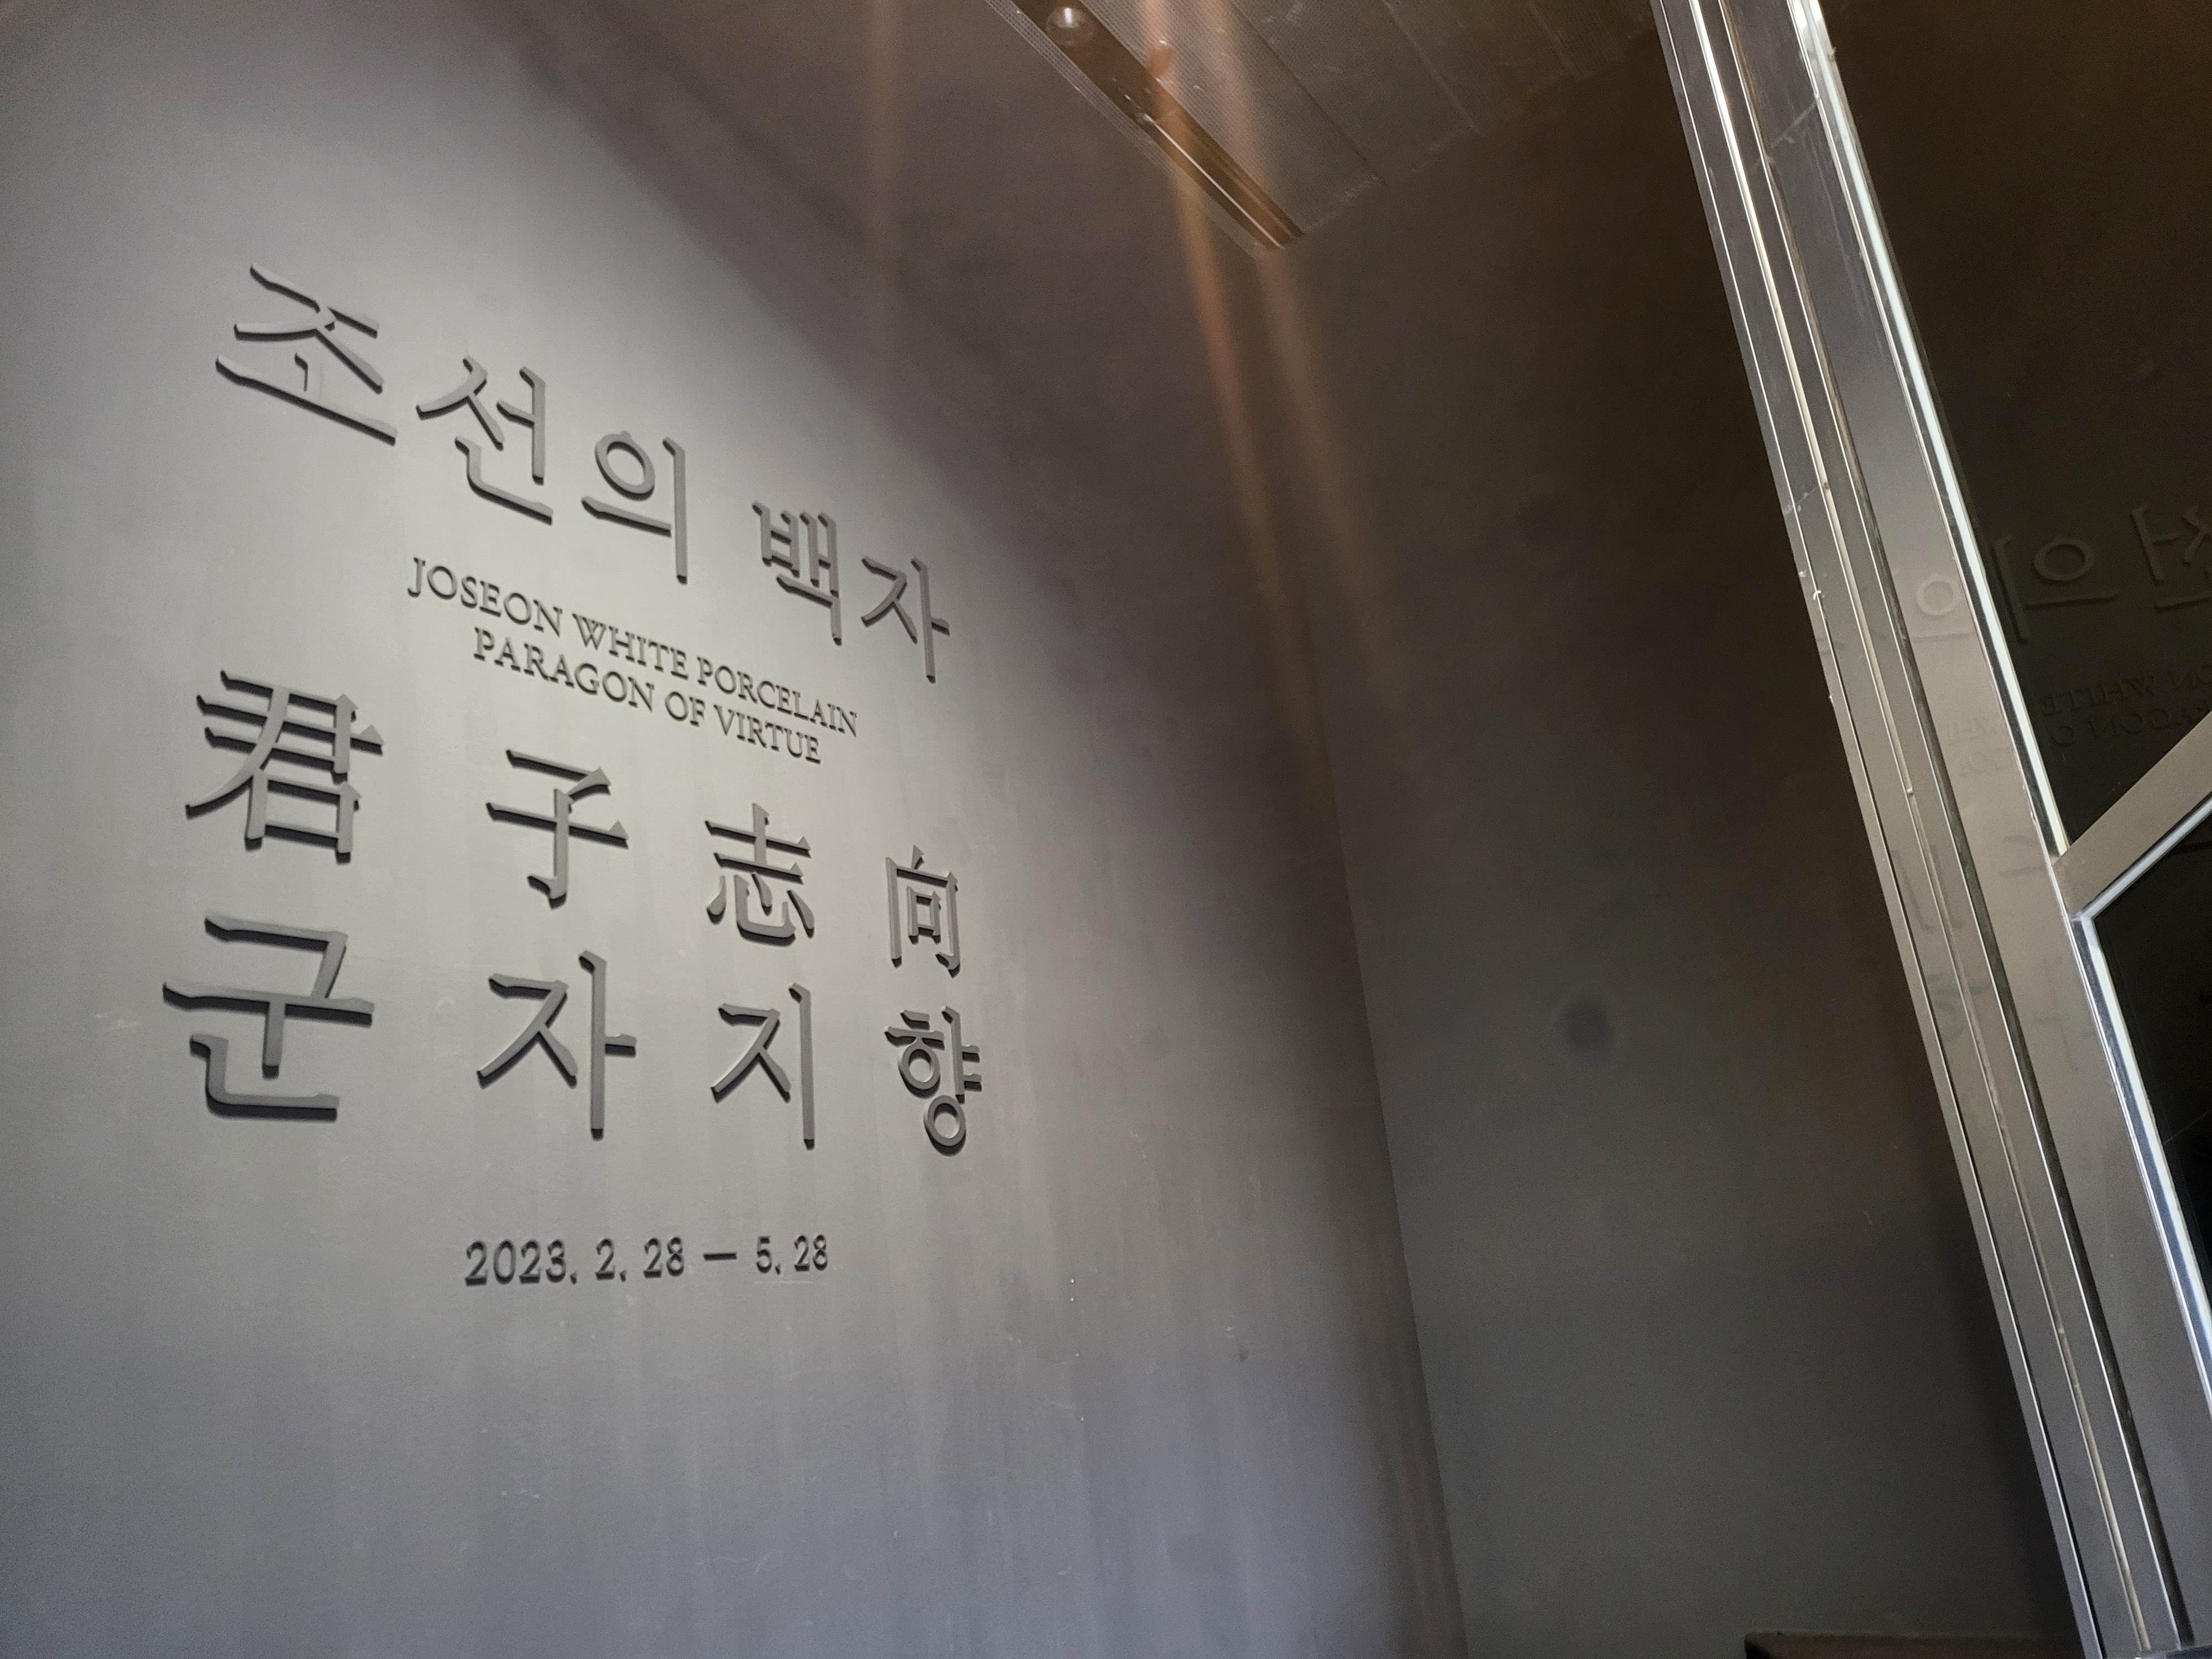 조선의 백자
JOSEON WHITE PORCELAIN
PARAGON OF VIRTUE
君子志向
군자지향
2023. 2. 28 — 5. 28